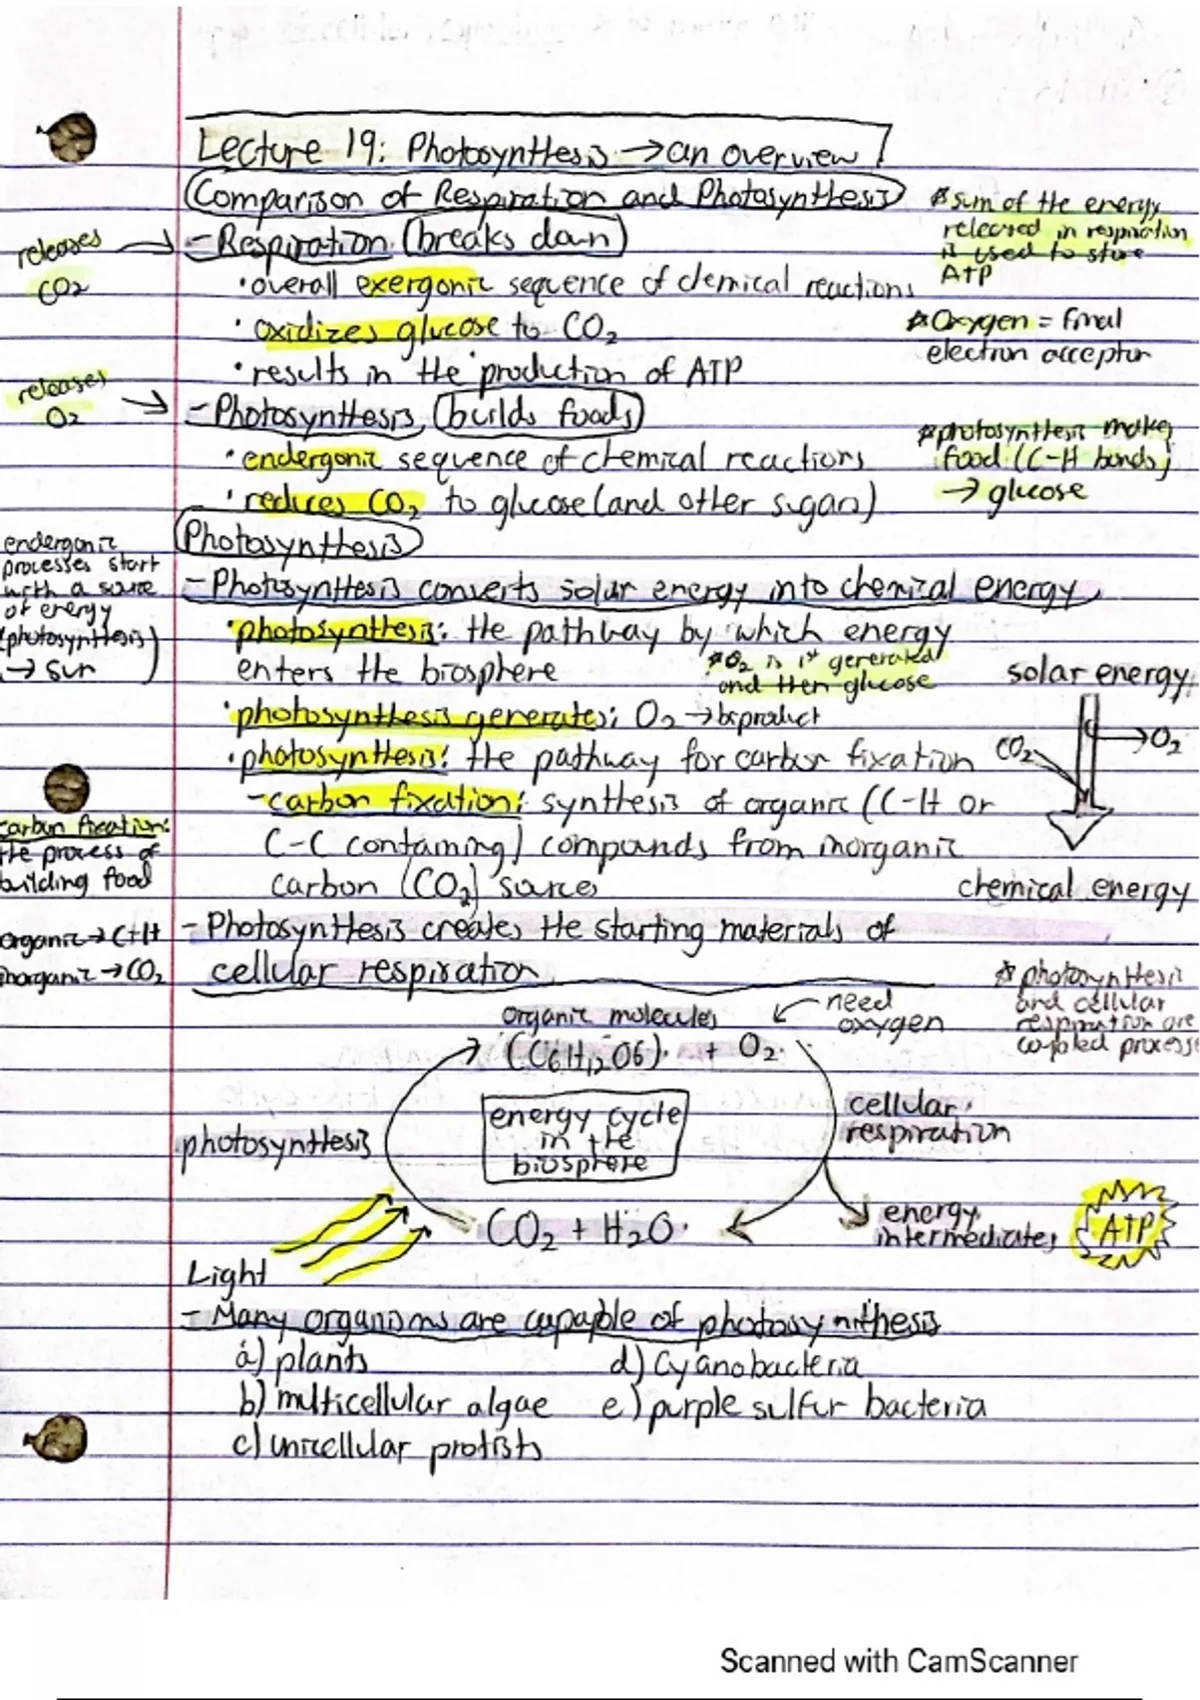 Lecture 19: Photosynthesis → an overview
Comparison of Respiration and Photosynthesis
* sum of the energy
released in respiration
is used to store
ATP
releases
CO2
- Respiration (breaks down)
• overall exergonic sequence of chemical reactions
• oxidizes glucose to CO2
* Oxygen = final
electron acceptor
• results in the production of ATP
releases
O2
- Photosynthesis (builds foods)
• endergonic sequence of chemical reactions
• reduces CO2 to glucose (and other sugars)
* photosynthesis makes
food (C-H bonds)
→ glucose
Photosynthesis
endergonic
processes start
with a source
of energy
(photosynthesis)
→ sun
- Photosynthesis converts solar energy into chemical energy
• photosynthesis: the pathway by which energy
enters the biosphere
* O2 is 1st generated
and then glucose
• photosynthesis generates: O2 → biproduct
• photosynthesis: the pathway for carbon fixation
- carbon fixation: synthesis of organic (C-H or
C-C containing) compounds from inorganic
carbon (CO2) sources
solar energy
CO2
O2
chemical energy
carbon fixation:
the process of
building food
organic → C+H
inorganic → CO2
- Photosynthesis creates the starting materials of
cellular respiration
* photosynthesis
and cellular
respiration are
coupled processes
organic molecules
need
oxygen
(C6H12O6) + O2
energy cycle
in the
biosphere
photosynthesis
cellular
respiration
CO2 + H2O
energy
intermediates
ATP
Light
- Many organisms are capable of photosynithesis
a) plants
b) multicellular algae
c) unicellular protists
d) Cyanobacteria
e) purple sulfur bacteria
Scanned with CamScanner